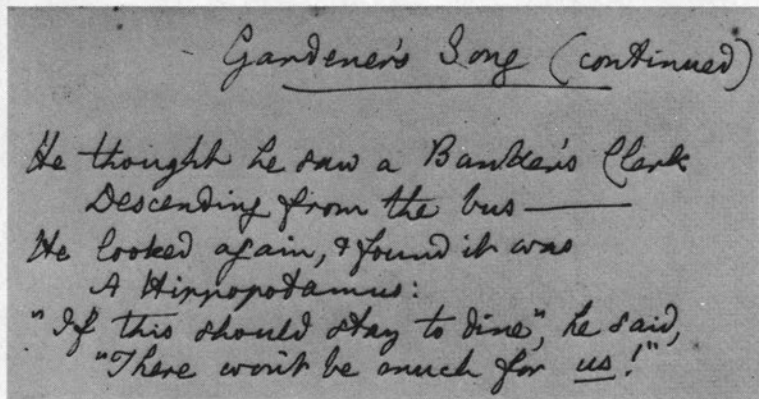 Gardener's Song (continued)
He thought he saw a Banker's Clerk
Descending from the bus —
He looked again, & found it was
A Hippopotamus:
"If this should stay to dine", he said,
"There won't be much for us!"